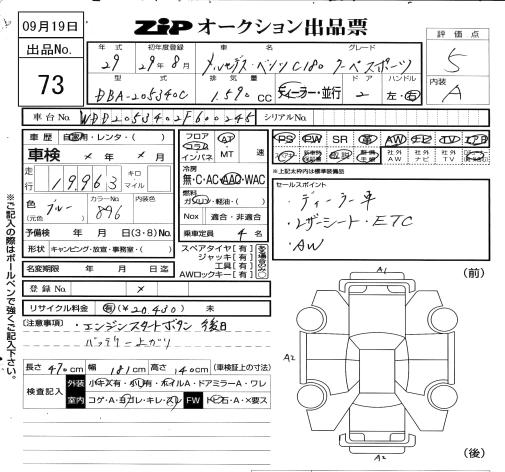 09月19日
ZiP オークション出品票
出品No.
73
評価点
5
内装
A
年式 初年度登録 車名 グレード
29 29年8月 メルセデス・ベンツ C180 クーペスポーツ
型式 排気量 ドア ハンドル
DBA-205340C 1,590 cc ディーラー・並行 2 左・右
車台No. WDD2053402F600245 シリアルNo.
車歴 自家用・レンタ・( )
車検 × 年 × 月
走行 19963 キロ マイル
色(元色) ブルー カラーNo. 896 内装色
予備検 年 月 日(3・8)No.
形状 キャンピング・放食・事務室・( )
名変期限 年 月 日迄
登録No. ×
リサイクル料金 有(¥20,430) 未
フロア コラム インパネ AT・MT 速
冷房 無・C・AC・AAC・WAC
燃料 ガソリン・軽油・( )
Nox 適合・非適合
乗車定員 4 名
スペアタイヤ【有】
ジャッキ【有】
工具【有】
AWロックキー【有】
ある場合のみ○
PS PW SR 革 AW ナビ TV エアB
社外AW 社外ナビ 社外TV
※上記太枠内は標準装備品
セールスポイント
・ディーラー車
・レザーシート・ETC
・AW
【注意事項】 ・エンジンスタートボタン 後日
バッテリー上がり
長さ 470cm 幅 181cm 高さ 140cm (車検証上の寸法)
検査記入 外装 小キズ有・小凹有・ホイルA・ドアミラーA・ワレ
室内 コゲ・A・ヨゴレ・キレ・スレ FW トビ石・A・×要ス
※ご記入の際はボールペンで強くご記入下さい。
A1
(前)
A2
A2
(後)